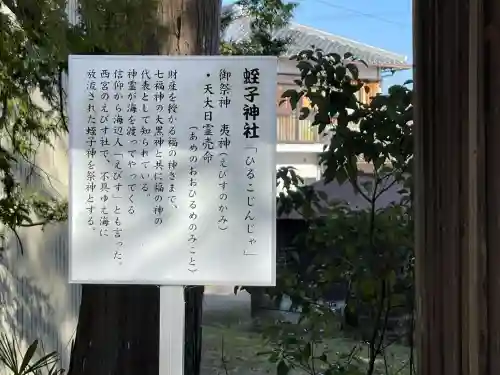 蛭子神社 「ひるこじんじゃ」
御祭神 夷神(えびすのかみ)
・天大日霊売命
(あめのおおひるめのみこと)
財産を授かる福の神さまで、
七福神の大黒神と共に福の神の
代表として知られている。
神霊が海を渡ってやってくる
信仰から海辺人「えびす」とも言った。
西宮のえびす社で、不具ゆえ海に
放流された蛭子神を祭神とする。